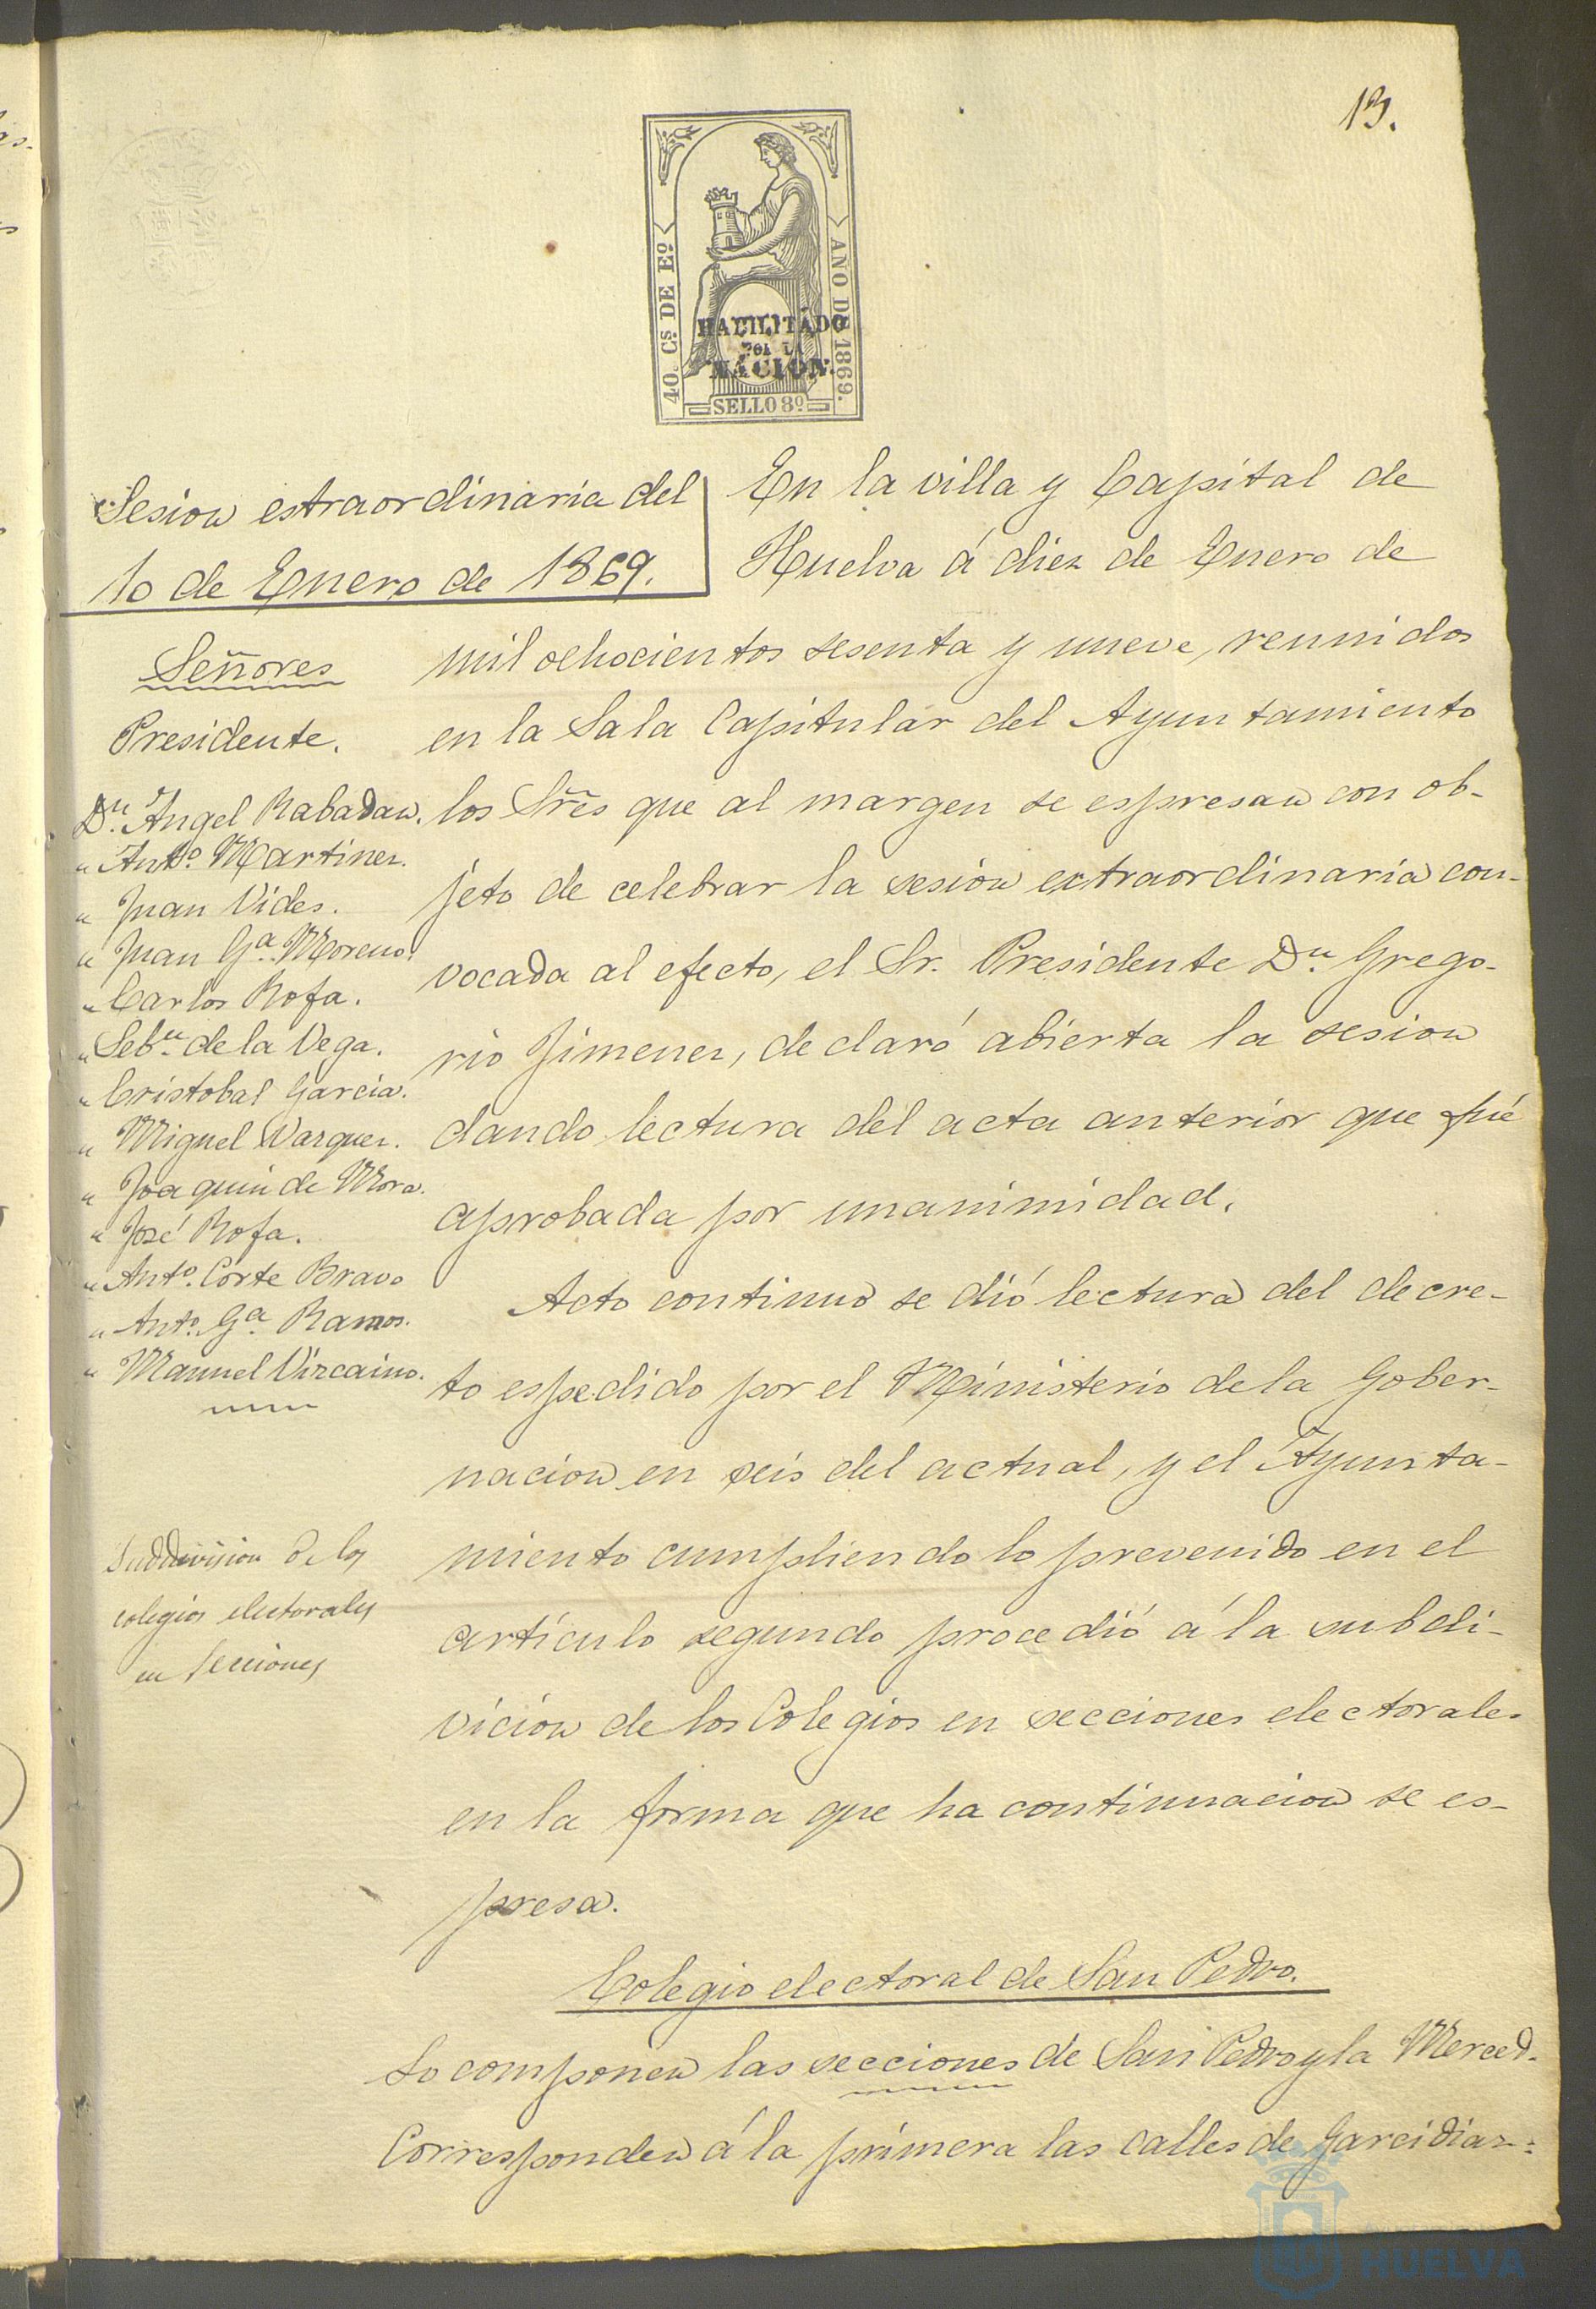 13.
40. Cs. DE Eº
AÑO DE 1869.
HABILITADO
POR LA
NACION.
SELLO 8º
Sesion estraordinaria del
10 de Enero de 1869.
Señores
Presidente.
Dn. Angel Rabadan.
" Anto. Martinez.
" Juan Vides.
" Juan Ga. Moreno.
" Carlos Rofa.
" Sebn. de la Vega.
" Cristobal Garcia.
" Miguel Vazquez.
" Joaquin de Mora.
" José Rofa.
" Anto. Corte Bravo
" Anto. Ga. Ramos.
" Manuel Vizcaino.
Subdivision de los
colegios electorales
en Secciones
En la villa y Capital de
Huelva á diez de Enero de
mil ochocientos sesenta y nueve, reunidos
en la Sala Capitular del Ayuntamiento
los Sres que al margen se espresan con ob-
jeto de celebrar la sesion extraordinaria con-
vocada al efecto, el Sr. Presidente Dn. Grego-
rio Jimenez, declaró abierta la sesion
dando lectura del acta anterior que fué
aprobada por unanimidad.
Acto continuo se dió lectura del decre-
to espedido por el Ministerio de la Gober-
nacion en seis del actual, y el Ayunta-
miento cumpliendo lo prevenido en el
artículo segundo procedió á la subdi-
vicion de los Colegios en secciones electorales
en la forma que ha continuacion se es-
presa.
Colegio electoral de San Pedro.
Lo componen las secciones de San Pedro y la Merced.
Corresponden á la primera las calles de Garcidiaz:
HUELVA